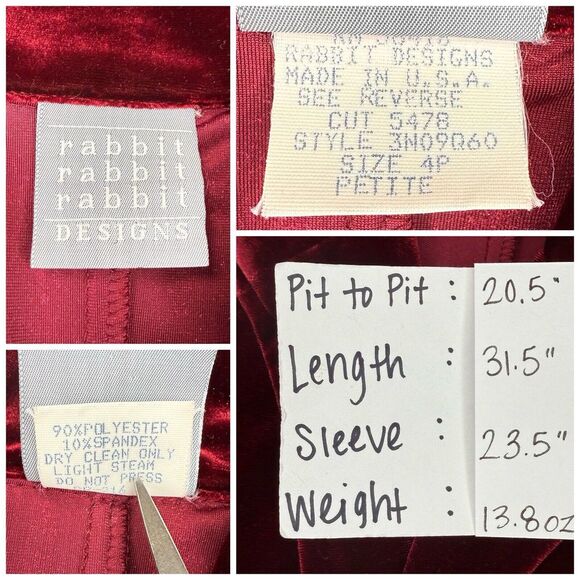 rabbit
rabbit
rabbit
DESIGNS
RABBIT DESIGNS
MADE IN U.S.A.
SEE REVERSE
CUT 5478
STYLE 3N09Q60
SIZE 4P
PETITE
90%POLYESTER
10%SPANDEX
DRY CLEAN ONLY
LIGHT STEAM
DO NOT PRESS
Pit to Pit : 20.5"
Length : 31.5"
Sleeve : 23.5"
Weight : 13.8oz